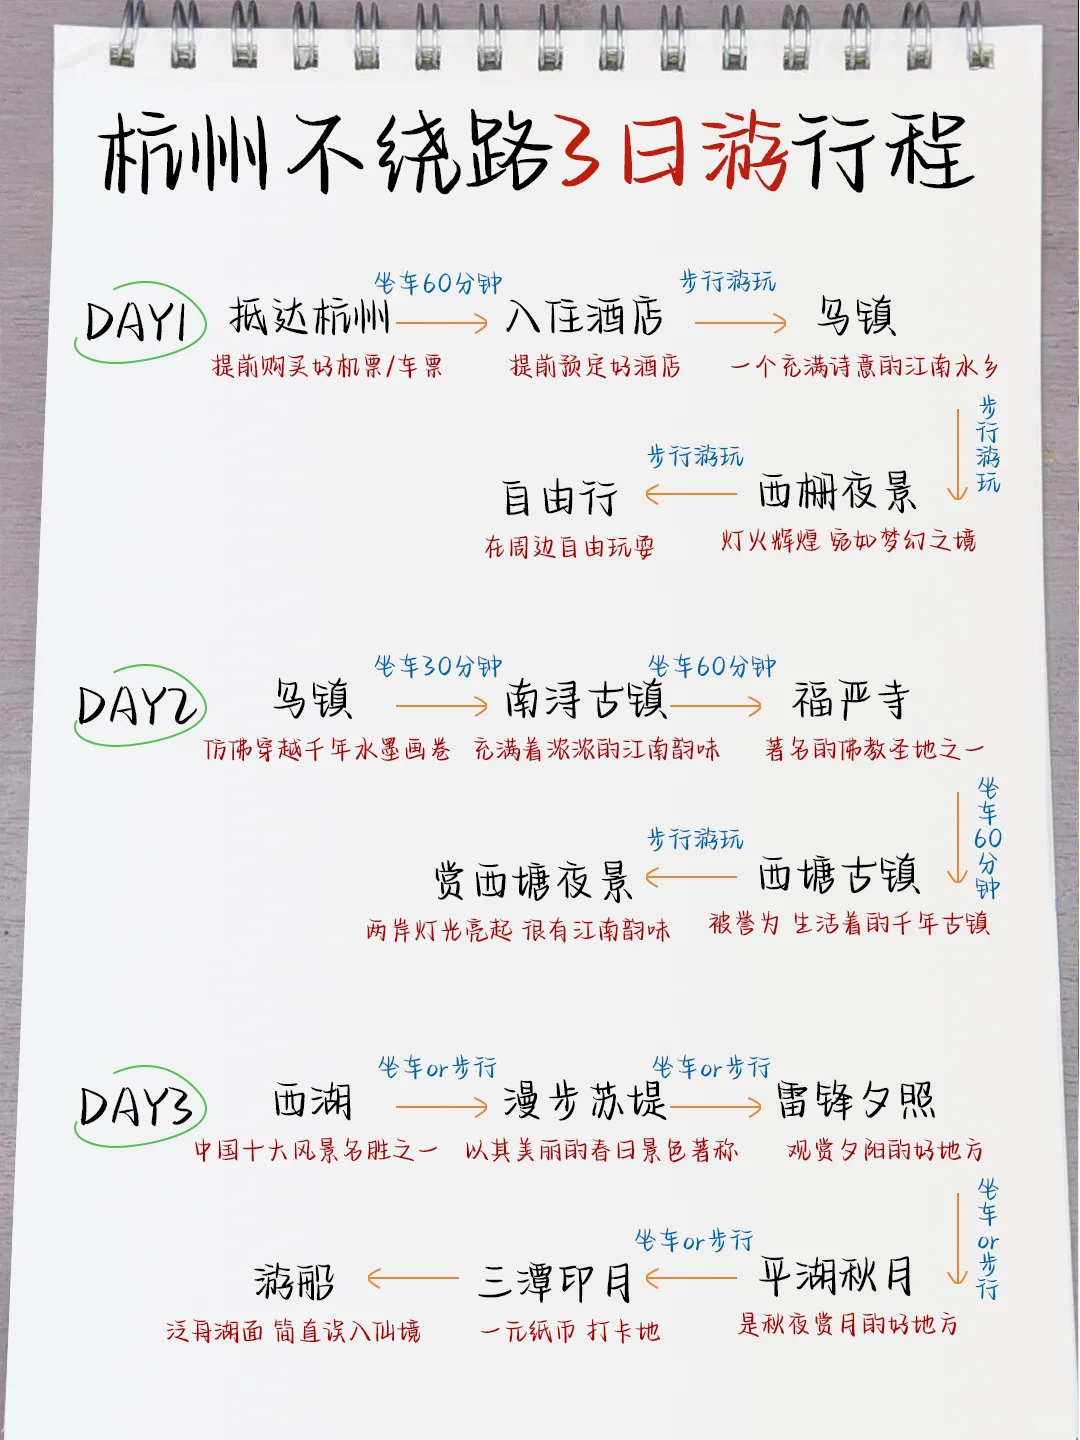 杭州不绕路3日游行程
坐车60分钟 步行游玩
DAY1 抵达杭州 入住酒店 乌镇
提前购买好机票/车票 提前预定好酒店 一个充满诗意的江南水乡
步行游玩
步行游玩
自由行 西栅夜景
在周边自由玩耍 灯火辉煌 宛如梦幻之境
坐车30分钟 坐车60分钟
DAY2 乌镇 南浔古镇 福严寺
仿佛穿越千年水墨画卷 充满着浓浓的江南韵味 著名的佛教圣地之一
坐车60分钟
步行游玩
赏西塘夜景 西塘古镇
两岸灯光亮起 很有江南韵味 被誉为 生活着的千年古镇
坐车or步行 坐车or步行
DAY3 西湖 漫步苏堤 雷锋夕照
中国十大风景名胜之一 以其美丽的春日景色著称 观赏夕阳的好地方
坐车or步行
坐车or步行
游船 三潭印月 平湖秋月
泛舟湖面 简直误入仙境 一元纸币 打卡地 是秋夜赏月的好地方